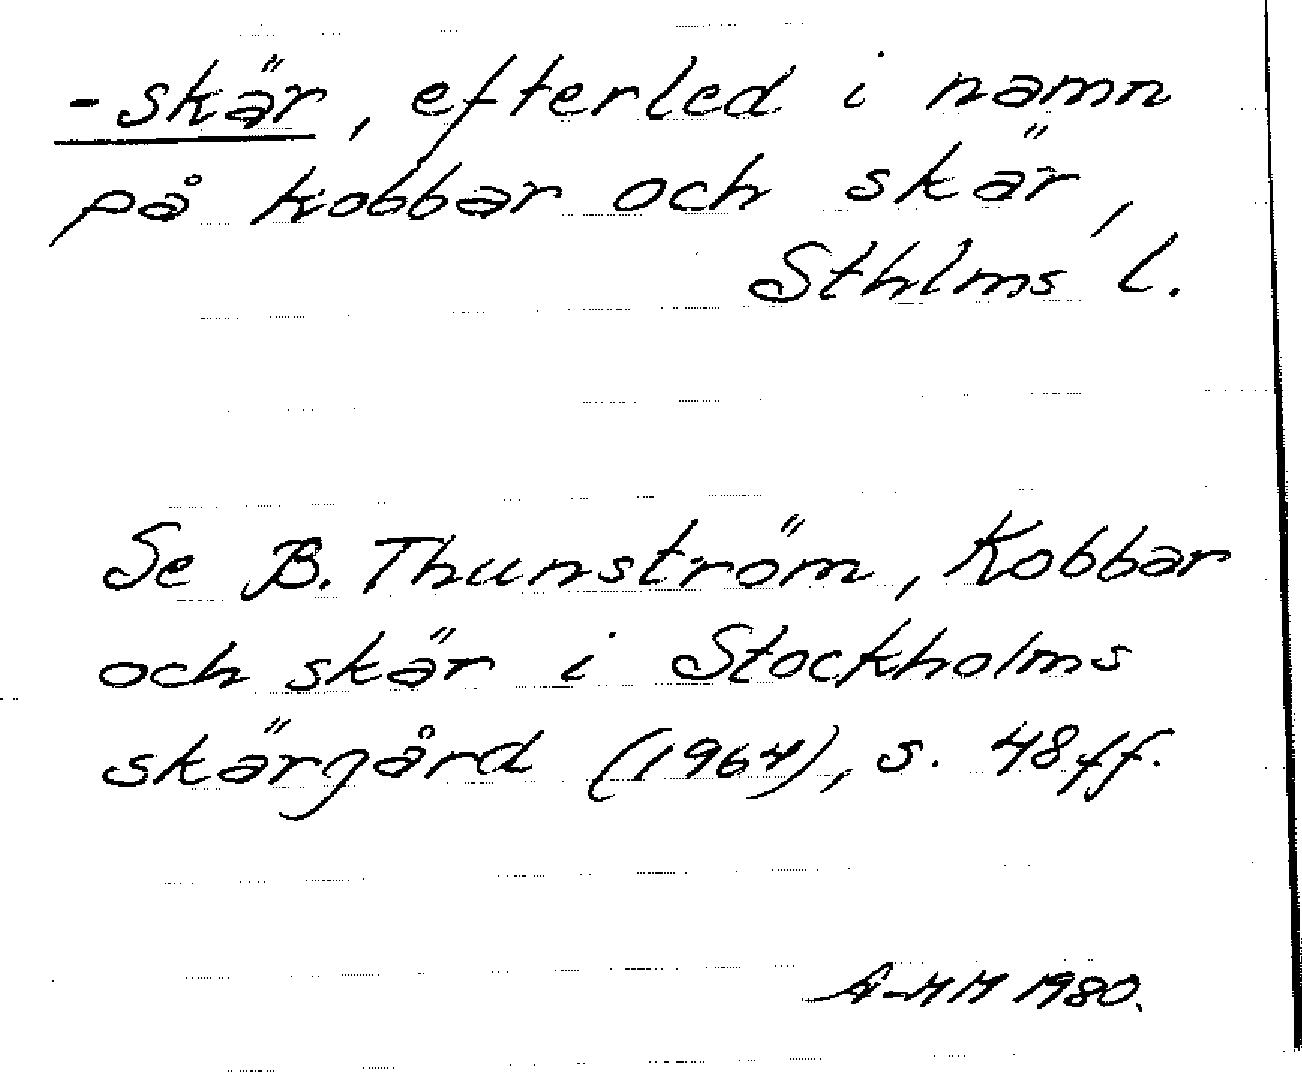 -skär, efterled i namn
på kobbar och skär,
Sthlms l.
Se B. Thunström, Kobbar
och skär i Stockholms
skärgård (1964), s. 48ff.
1980.